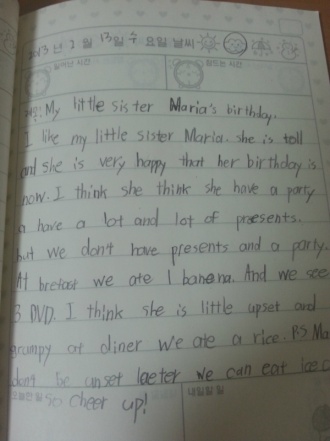 2013년 2월 13일 수요일 날씨
일어난 시간 잠드는 시간
제목: My little sister Maria's birthday.
I like my little sister Maria. she is toll
and she is very happy that her birthday is
now. I think she think she have a party
a have a lot and lot of praesents.
but we don't have presents and a party.
At brefast we ate 1 banena. And we see
3 DVD. I think she is little upset and
grumpy at diner we ate a rice. P.S Ma
dont be unset laeter we can eat ice c
오늘한 일 내일할 일
so cheer up!